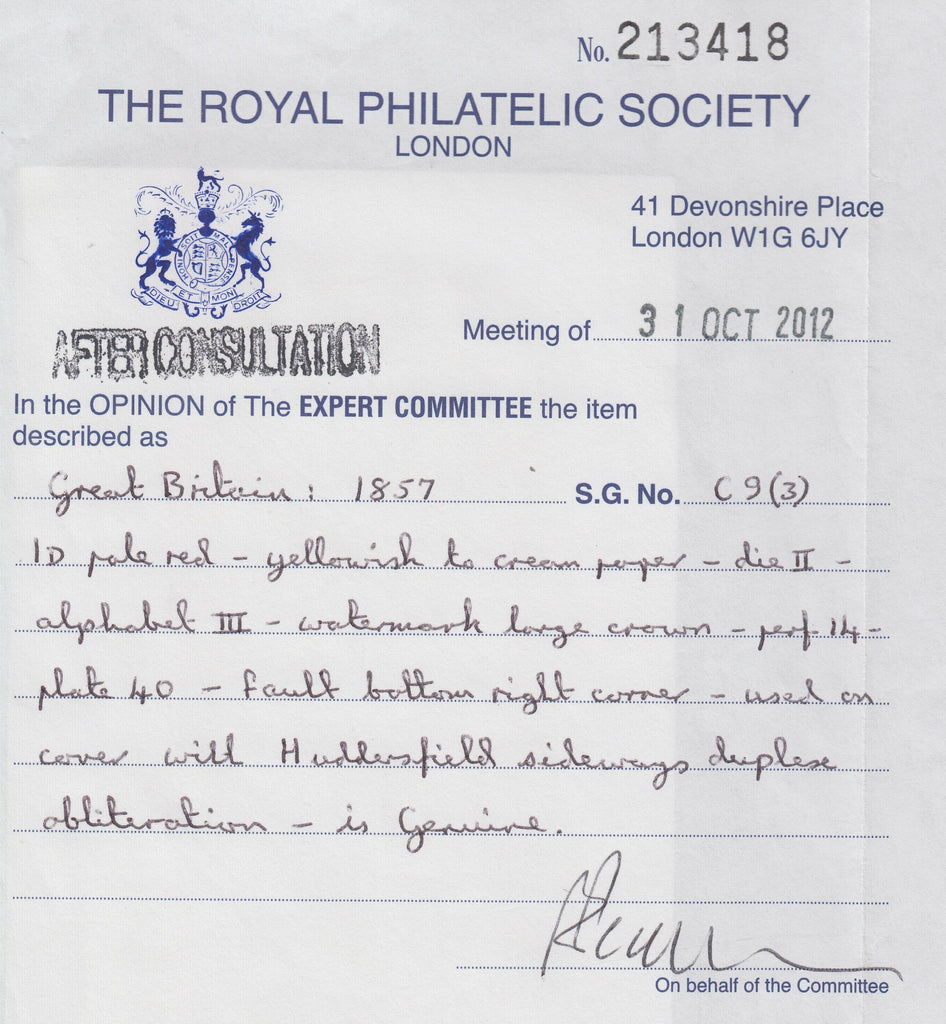 No. 213418
THE ROYAL PHILATELIC SOCIETY
LONDON
41 Devonshire Place
London W1G 6JY
SOIT MAL PENSE HONI
DIEU ET MON DROIT
AFTER CONSULTATION
Meeting of 31 OCT 2012
In the OPINION of The EXPERT COMMITTEE the item
described as
Great Britain: 1857 S.G. No. C9(3)
1D pale red - yellowish to cream paper - die II -
alphabet III - watermark large crown - perf 14 -
plate 40 - fault bottom right corner - used on
cover with Huddersfield sideways duplex
obliteration - is Genuine.
On behalf of the Committee